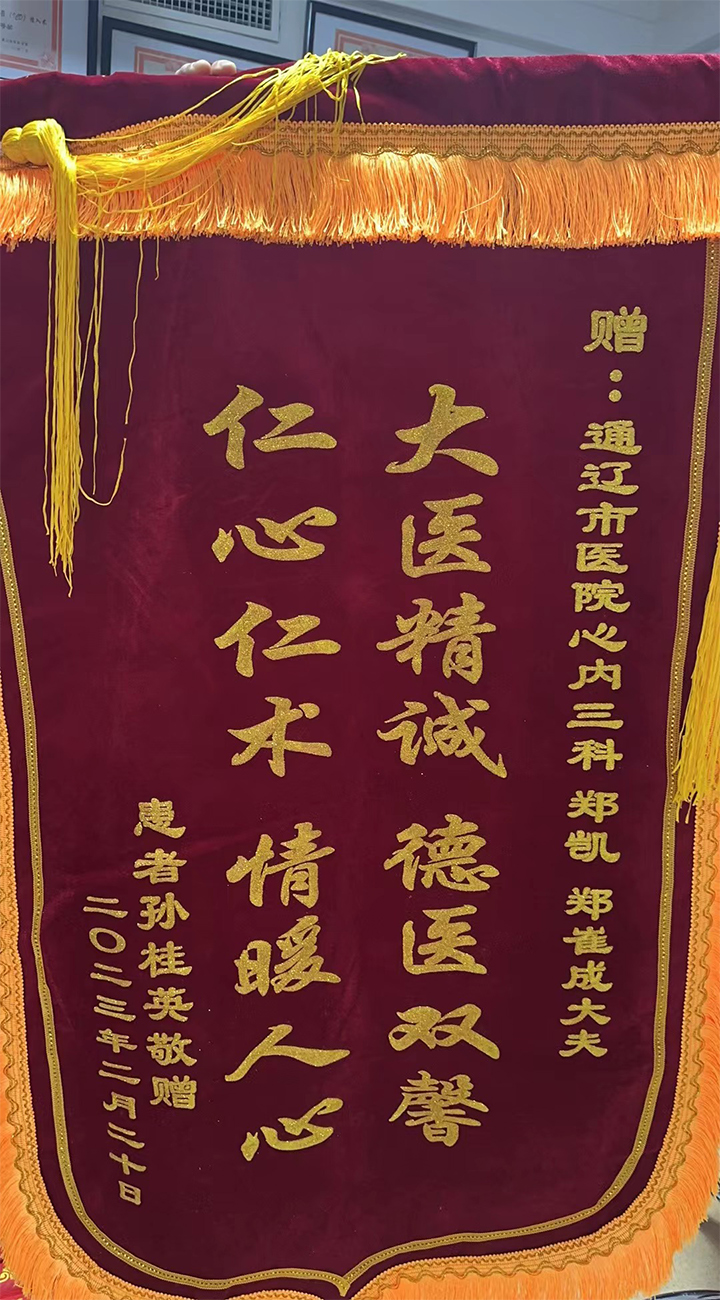 赠：通辽市医院心内三科 郑凯 郑崔成大夫
大医精诚 德医双馨
仁心仁术 情暖人心
患者孙桂英敬赠
二〇二三年二月二十日